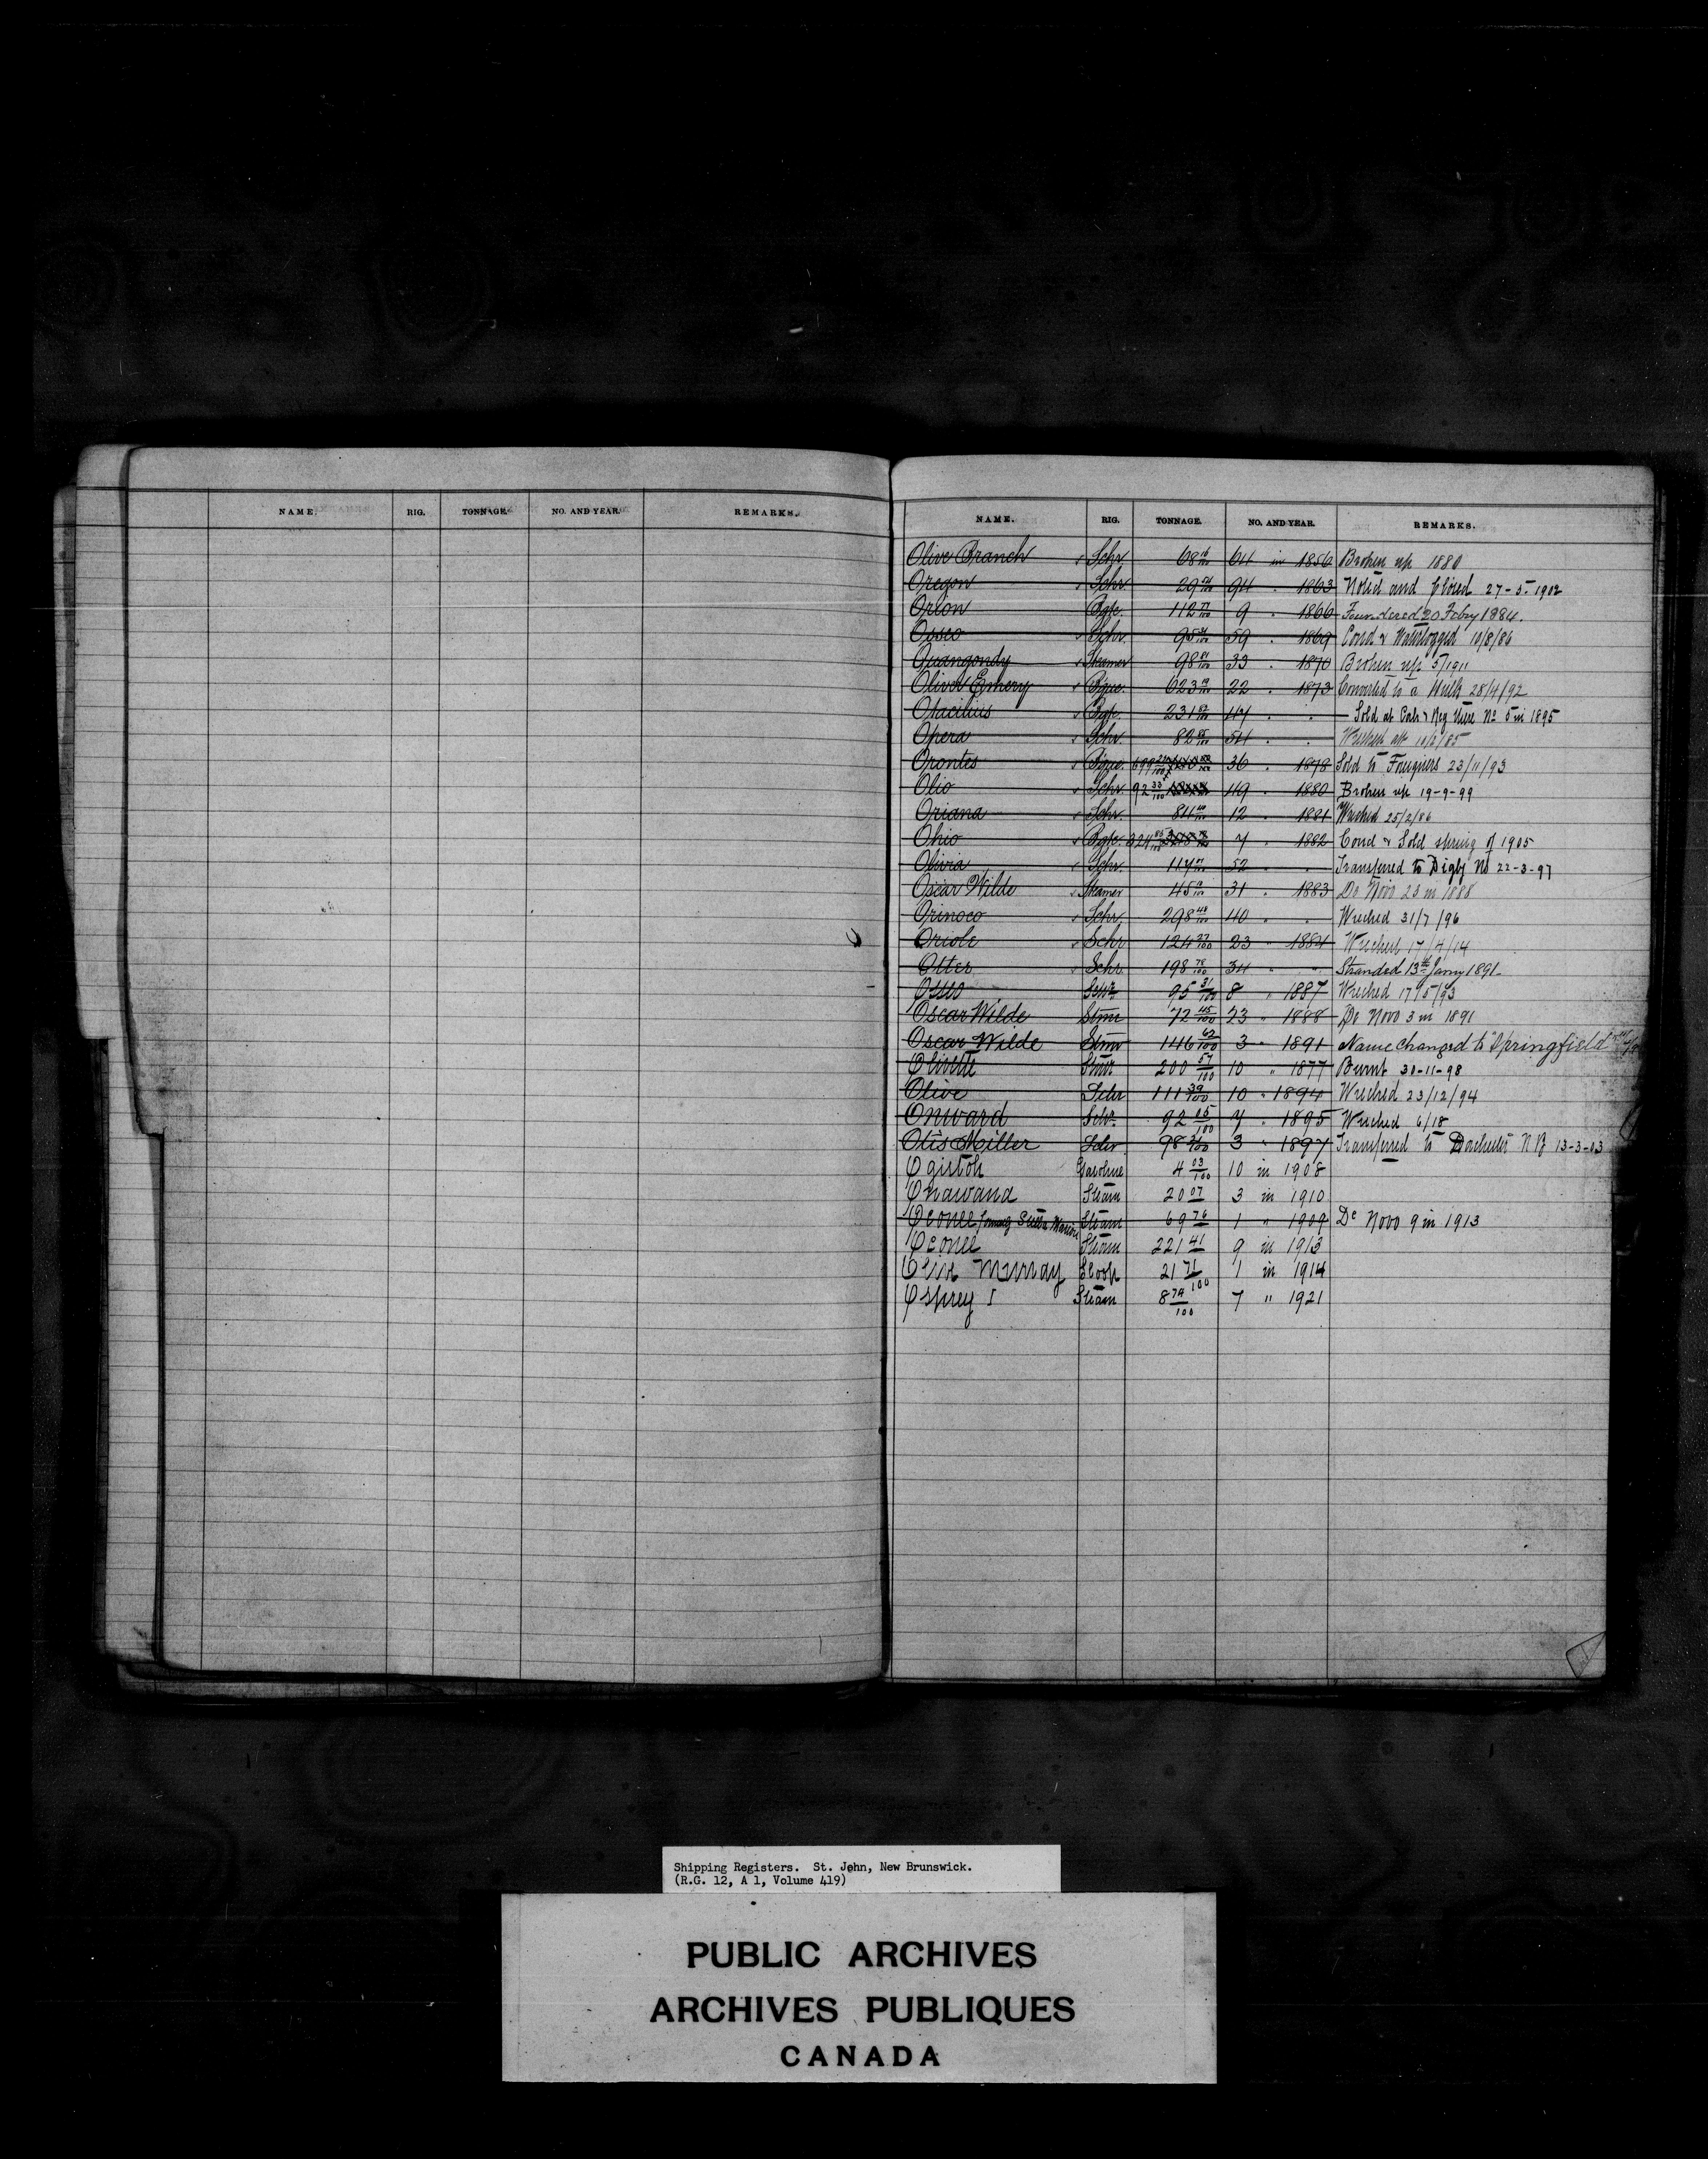 NAME. RIG. TONNAGE. NO. AND YEAR. REMARKS.
NAME. RIG. TONNAGE. NO. AND YEAR. REMARKS.
Olive Branch Schr. 68 16/100 64 in 1856 Broken up 1880
Oregon Schr. 29 94 " 1863 Noted and Closed 27-5-1902
Orion Bgk. 112 9 " 1866 Foundered 20 Febry 1884.
Osseo Schr. 95 59 " 1869 Cond & Waterlogged 10/8/86
Ouangondy Steamer 98 33 " 1870 Broken up 5/1911
Oliver Emery Bque. 623 22 " 1873 Converted to a Hulk 28/4/92
Otacilius Bgk. 231 47 " " Sold at Reg there No 5 in 1895
Opera Schr. 82 54 " " Wrecked 10/2/85
Orontes Bque. 36 " 1878 Sold to Foreigners 23/11/93
Olio Schr. 92 33/100 49 " 1880 Broken up 19-9-99
Oriana Schr. 84 12 " 1881 Wrecked 25/2/86
Ohio Bgk. 324 7 " 1882 Cond & Sold spring of 1905
Olivia Schr. 117 52 " " Transferred to Digby NS 22-3-97
Oscar Wilde Steamer 45 31 " 1883 De Novo 23 in 1888
Orinoco Schr. 298 48/100 40 " " Wrecked 31/7/96
Oriole Schr 124 27/100 23 " 1884 Wrecked 17/4/14
Otter Schr. 198 78/100 34 " " Stranded 13th Jany 1891
Osseo Schr 95 31/100 8 " 1887 Wrecked 17/5/93
Oscar Wilde Stmr 72 45/100 23 " 1888 De Novo 3 in 1891
Oscar Wilde Stmr 146 62/100 3 " 1891 Name changed to "Springfield"
Olivette Stmr 200 57/100 10 " 1877 Burnt 30-11-98
Olive Schr 111 39/100 10 " 1894 Wrecked 23/12/94
Onward Schr 92 05/100 7 " 1895 Wrecked 6/18
Otis Miller Schr 98 2/100 3 " 1897 Transferred to Dorchester NB 13-3-03
Ogistoh Gasoline 4 03/100 10 in 1908
Onawana Steam 20 07 3 in 1910
Oconee formerly Stella Maris Steam 69 76 1 " 1909 De Novo 9 in 1913
Oconee Steam 221 41 9 in 1913
Murray Sloop 21 71/100 1 in 1914
Osprey I Steam 8 74/100 7 " 1921
Shipping Registers. St. John, New Brunswick.
(R.G. 12, A 1, Volume 419)
PUBLIC ARCHIVES
ARCHIVES PUBLIQUES
CANADA